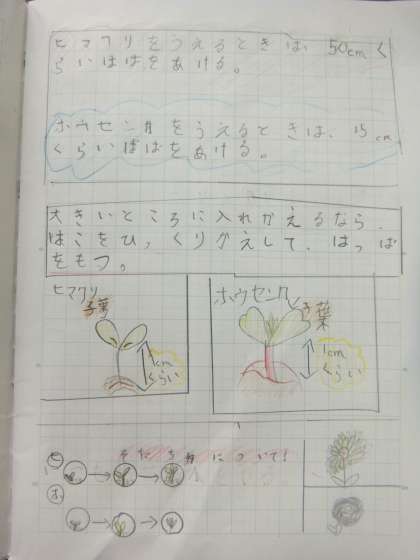 ヒマワリをうえるときは、50cmく
らいはばをあける。
ホウセンカをうえるときは、15cm
くらいはばをあける。
大きいところに入れかえるなら、
はこをひっくりかえして、はっぱ
をもつ。
ヒマワリ
子葉
1cm
くらい
ホウセンカ
子葉
1cm
くらい
そだち方について！
ヒ
ホ